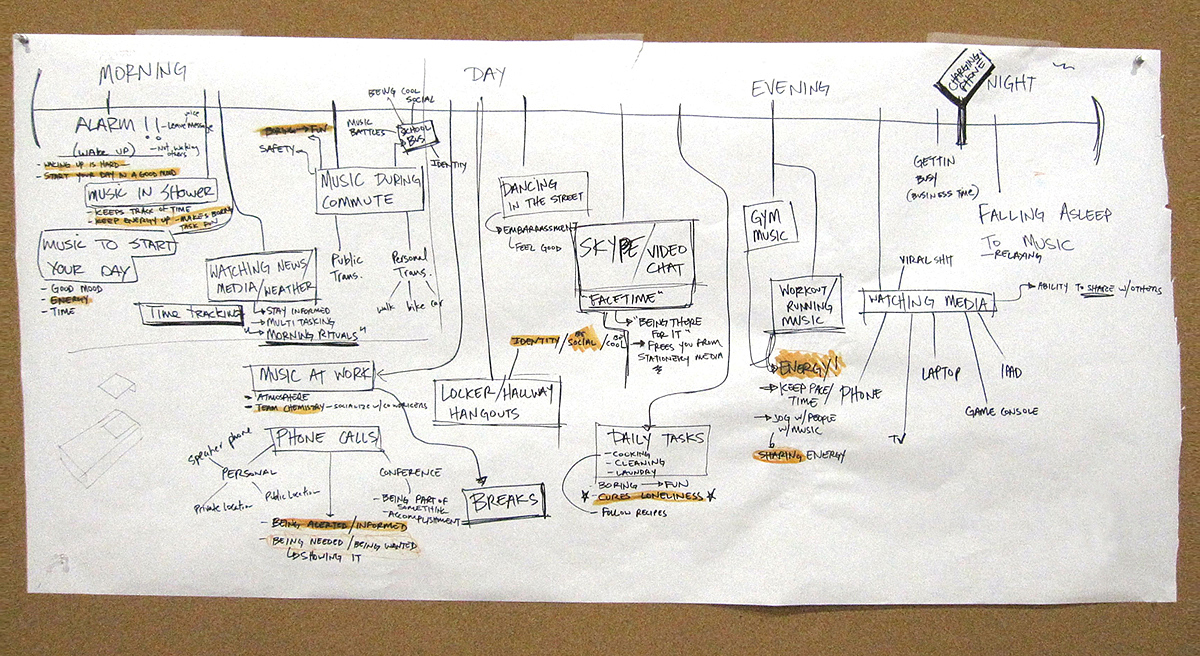 MORNING
DAY
EVENING
NIGHT
CHARGING
PHONE
ALARM !!
voice
- LEAVE MESSAGE
(WAKE UP)
- Not waking
others
- WAKING UP IS HARD
- START YOUR DAY IN A GOOD MOOD
MUSIC IN SHOWER
- KEEPS TRACK OF TIME
- KEEP ENERGY UP - MAKES BORING
TASK FUN
MUSIC TO START
YOUR DAY
- GOOD MOOD
- ENERGY
- TIME
WATCHING NEWS/
MEDIA/WEATHER
STAY INFORMED
MULTI TASKING
"MORNING RITUALS"
Time tracking
BORING → FUN
SAFETY
MUSIC DURING
COMMUTE
Public
Trans.
Personal
Trans.
walk bike car
BEING COOL
SOCIAL
MUSIC
BATTLES
SCHOOL
BUS
IDENTITY
MUSIC AT WORK
- ATMOSPHERE
- TEAM CHEMISTRY - SOCIALIZE W/ COWORKERS
PHONE CALLS
speaker phone
PERSONAL
Private location
Public Location
CONFERENCE
- BEING PART OF
SOMETHING
- ACCOMPLISHMENT
- BEING ALERTED/INFORMED
- BEING NEEDED/BEING WANTED
SHOWING IT
BREAKS
LOCKER/HALLWAY
HANGOUTS
DANCING
IN THE STREET
EMBARRASSMENT
FEEL GOOD
SKYPE/VIDEO
CHAT
"FACETIME"
"BEING THERE
FOR IT"
FREES YOU FROM
STATIONERY MEDIA
IDENTITY/BE SOCIAL/BE COOL
DAILY TASKS
- COOKING
- CLEANING
- LAUNDRY
- BORING → FUN
- CURES LONELINESS
- FOLLOW RECIPES
GYM
MUSIC
WORKOUT/
RUNNING
MUSIC
ENERGY!
KEEP PACE/
TIME
JOG W/ PEOPLE
W/ MUSIC
SHARING ENERGY
VIRAL SHIT
WATCHING MEDIA
ABILITY TO SHARE W/ OTHERS
PHONE
TV
LAPTOP
GAME CONSOLE
IPAD
GETTIN
BUSY
(BUSINESS TIME)
FALLING ASLEEP
TO MUSIC
- RELAXING